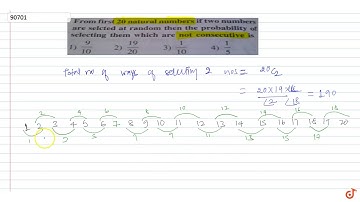 90701
From first 20 natural numbers if two numbers
are selcted at random then the probability of
selecting them which are not consecutive is
1) 9/10 2) 19/20 3) 1/10 4) 1/5
Total no of ways of selecting 2 nos = 20C2
= 20 x 19 x 18 / 2 18 = 190
2 4 6 8 10 12 14 16 18
1 2 3 4 5 6 7 8 9 10 11 12 13 14 15 16 17 18 19 20